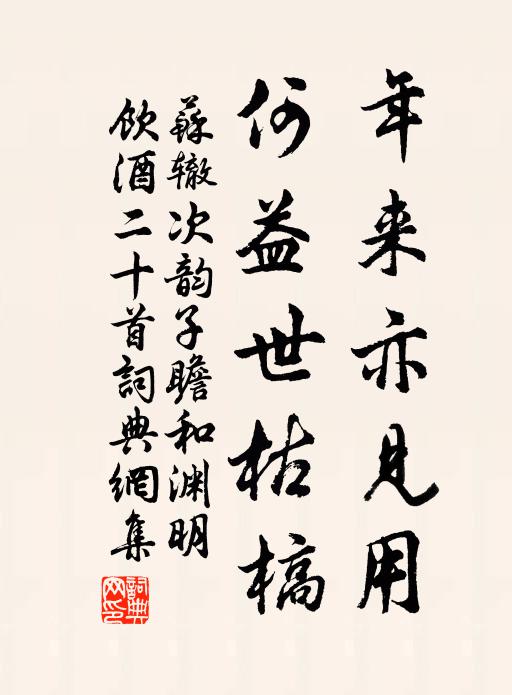 年来亦见用
何益世枯槁
苏辙次韵子瞻和渊明
饮酒二十首詞典網集
詞典网印